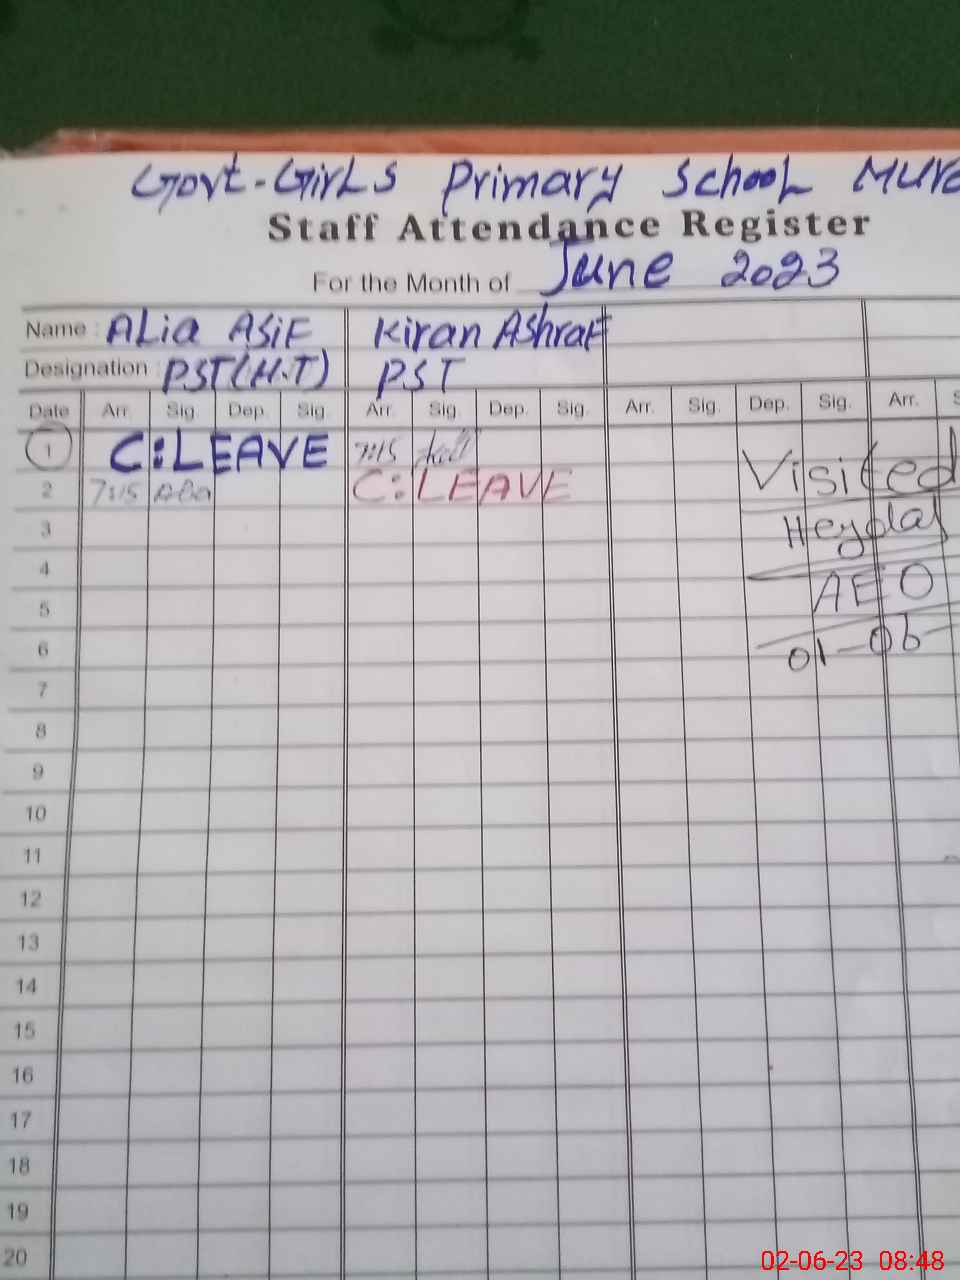 Govt-Girls Primary School
Staff Attendance Register
For the Month of June 2023
Name : ALia ASiF Kiran AshraF
Designation : PST(H.T) PST
Date Arr. Sig. Dep. Sig. Arr. Sig. Dep. Sig. Arr. Sig. Dep. Sig. Arr.
1 C:LEAVE 7:15
2 7:15 C:LEAVE
Visited
AEO
01-06-
3
4
5
6
7
8
9
10
11
12
13
14
15
16
17
18
19
20
02-06-23 08:48